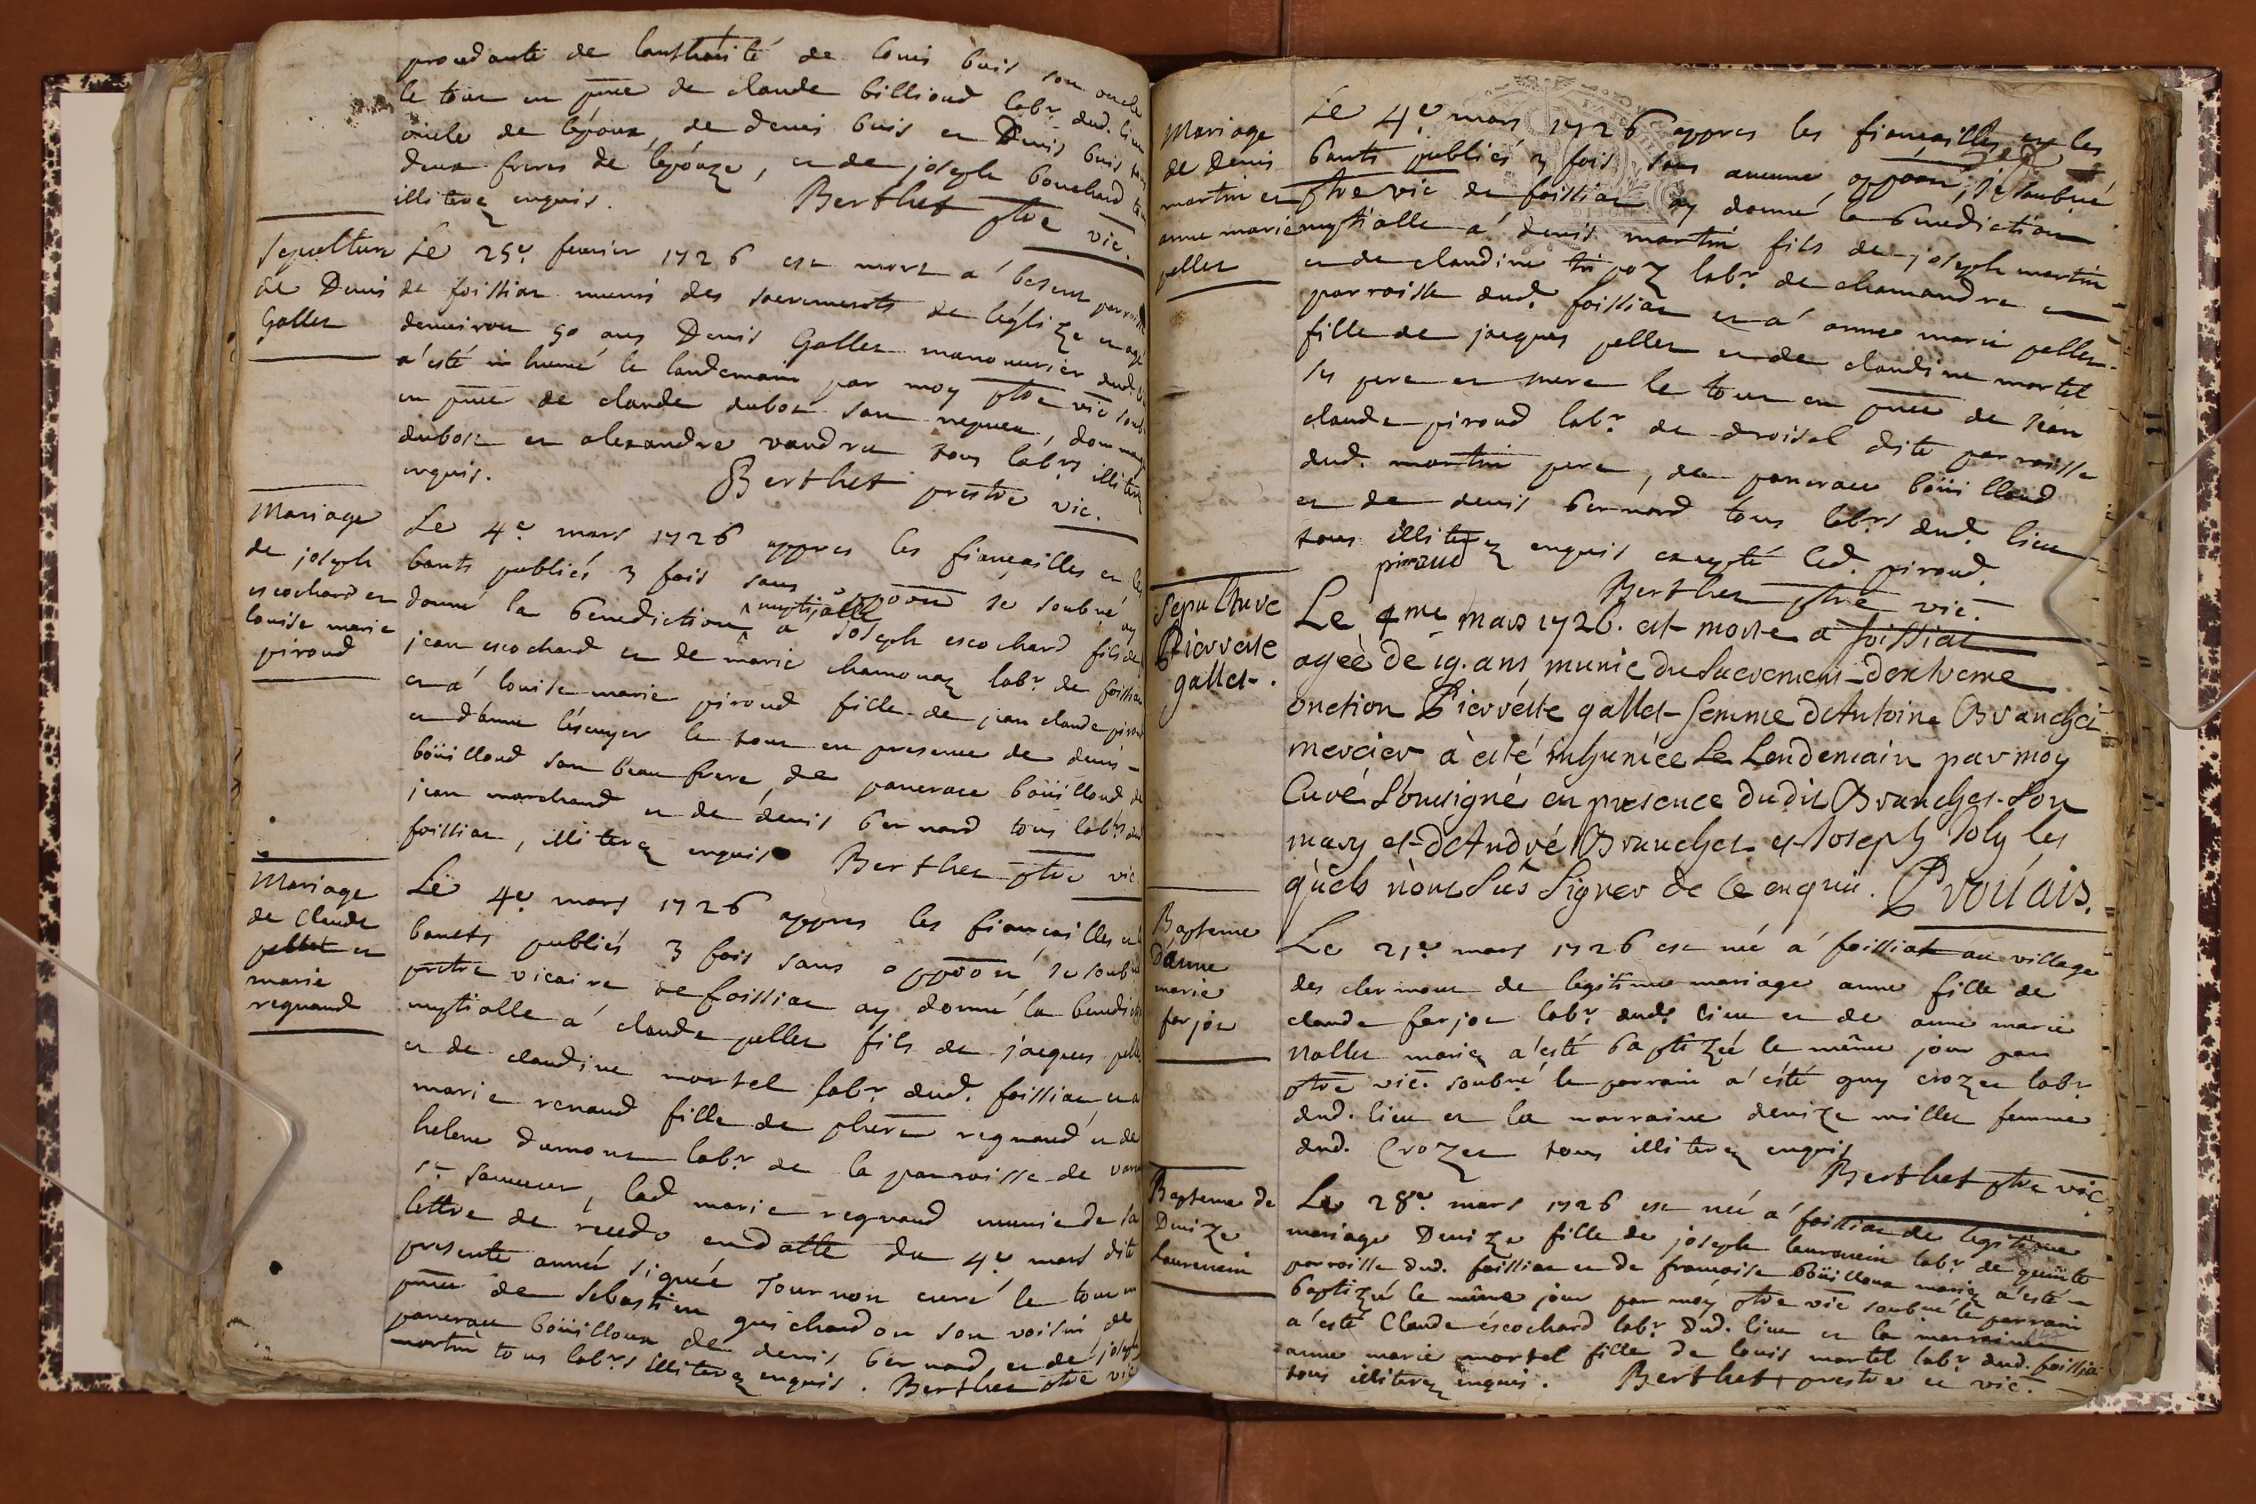 procedante de lauthorité de louis buis son oncle
le tout en pnce de claude billioud labr. dud. lieu
oncle de lépoux, de denis buis et Denis buis
deux freres de lépouze, et de joseph bouchard
illiterez enquis. Berthet ptre vic.
Sepulture
de Denis
Gallet
Le 25e. fevrier 1726 est mort a besent parroisse
de foissiat muni des sacrements de léglize et agé
denviron 50 ans Denis Gallet manouvrier dud.
a esté inhumé le landemain par moy ptre vic
en pnce de claude dubost son nepveu,
dubost et alexandre vaudru tous labrs illiterez
enquis. Berthet prestre vic.
Mariage
de joseph
escochard et
louise marie
piroud
Le 4e. mars 1726 appres les fiançailles et les
bants publiés 3 fois sans oppoon je soubné ay
donné la benediction nuptialle a Joseph escochard fils de
jean escochard et de marie chamonaz labr. de foissiat
et a louise marie piroud fille de jean claude piroud
et d'anne léscuyer le tout en presence de denis
böuilloud son beau frere, de pancrace böuilloud de
jean marchand et de denis bernard tous labrs
foissiat, illiterez enquis Berthet ptre vic.
Mariage
de Claude
pellet et
marie
regnaud
Le 4e. mars 1726 appres les fiançailles et
bancts publiés 3 fois sans oppoon je soubné
pretre vicaire de foissiat ay donné la benediction
nuptialle a claude pellet fils de jacques pellet
et de claudine mortel labr. dud. foissiat et a
marie renaud fille de regnaud et de
helene dumont labr. de la parroisse de
st. sauveur, lad marie regnaud munie de sa
lettre de recedo en datte du 4e. mars dite
presente année signée Tournon curé le tout en
pnce de Sebastien guichardon son voisin de
pancrace böuilloux de denis bernard, et de joseph
martin tous labrs illiterez enquis. Berthet ptre vic
Mariage
de Denis
martin et
anne marie
pellet
Le 4e. mars 1726 appres les fiançailles et les
bants publiés 3 fois sans aucune oppoon, je soubné
ptre vic de foissiat ay donné la benediction
nuptialle a denis martin fils de joseph martin
et de claudine tripoz labr. de chamandre
parroisse dud. foissiat et a anne marie pellet
fille de jacques pellet et de claudine mortel
ses pere et mere le tout en pnce de jean
claude piroud labr. de droisel dite parroisse
dud. martin pere, de pancrace böuilloud
et de denis bernard tous labrs dud. lieu
tous illiterez enquis excepté led. piroud.
piroud Berthet ptre vic.
Sepulture
Pierrette
gallet.
Le 4me mars 1726. est morte a foissiat
ageè de 19. ans munie du Sacrement d'extreme
onction Pierrétte gallet femme d'Antoine Branchet
mercier à esté inhumée Le Lendemain par moy
Curé Sousigné en presence dudit Branchet Son
mary et d'André Branchet et Joseph Joly les
quels n'ont Sûs Signer de ce enquis. Provuais.
Bapteme
d'anne
marie
ferjot
Le 21e. mars 1726 est née a foissiat au village
des clermont de legitime mariage anne fille de
claude ferjot labr. dud. lieu et de anne marie
nallet mariez a esté baptizée le même jour par
ptre vic. soubné le parrain a ésté guy crozet labr.
dud. lieu et la marraine denize millet femme
dud. Crozet tous illiterez enquis
Berthet ptre vic.
Bapteme de
Denize
Laurencin
Le 28e. mars 1726 est née a foissiat de legitime
mariage Denize fille de joseph laurencin labr. de
parroisse dud. foissiat et de francoise böuilloux mariez a ésté
baptizée le même jour par moy ptre vic soubné le parrain
a esté Claude éscochard labr. dud. lieu et la marraine
anne marie mortel fille de louis mortel labr. dud. foissiat
tous illiterez enquis. Berthet prestre et vic.